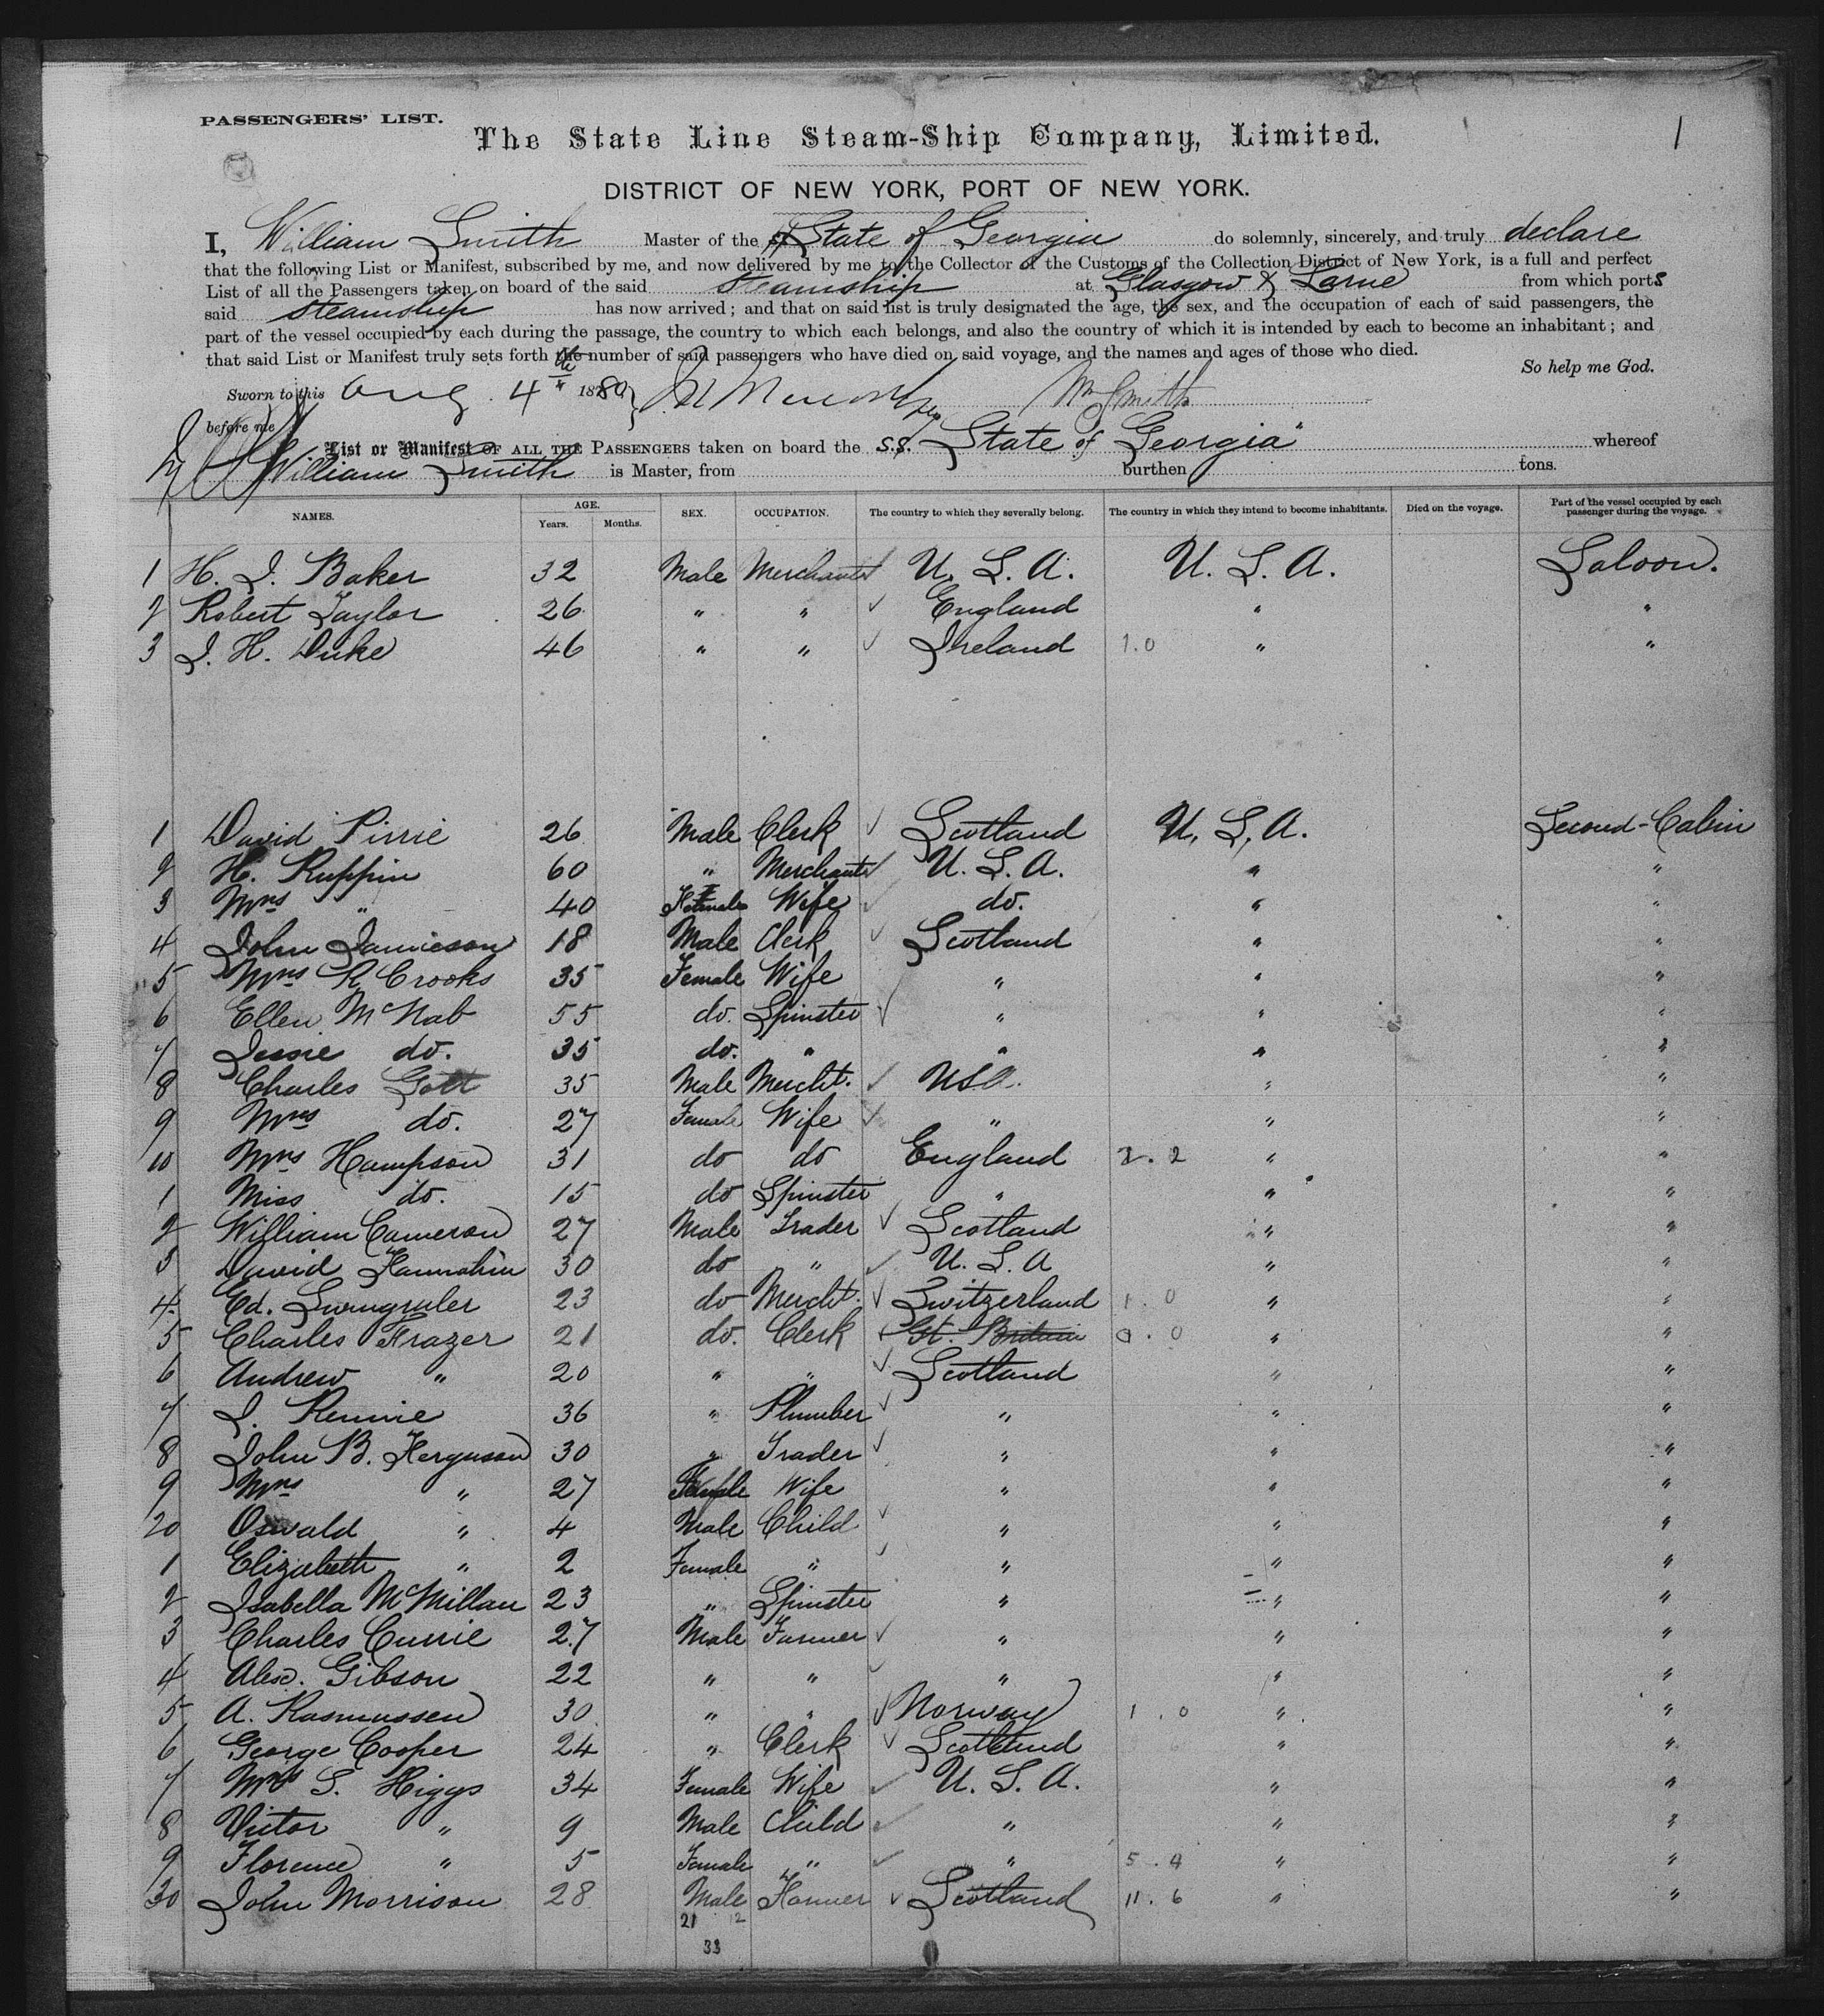 PASSENGERS' LIST.
1
The State Line Steam-Ship Company, Limited.
DISTRICT OF NEW YORK, PORT OF NEW YORK.
I, William Smith Master of the SS State of Georgia do solemnly, sincerely, and truly declare
that the following List or Manifest, subscribed by me, and now delivered by me to the Collector of the Customs of the Collection District of New York, is a full and perfect
List of all the Passengers taken on board of the said steamship at Glasgow & Larne from which ports
said steamship has now arrived; and that on said list is truly designated the age, the sex, and the occupation of each of said passengers, the
part of the vessel occupied by each during the passage, the country to which each belongs, and also the country of which it is intended by each to become an inhabitant; and
that said List or Manifest truly sets forth the number of said passengers who have died on said voyage, and the names and ages of those who died.
So help me God.
Sworn to this Aug. 4th 1880 Wm Smith
before me
List or Manifest OF ALL THE PASSENGERS taken on board the S.S. "State of Georgia" whereof
William Smith is Master, from burthen tons.
NAMES. AGE. Years. Months. SEX. OCCUPATION. The country to which they severally belong. The country in which they intend to become inhabitants. Died on the voyage. Part of the vessel occupied by each passenger during the voyage.
1 H. J. Baker 32 Male Merchant ✓ U. S. A. U. S. A. Saloon.
2 Robert Taylor 26 " " ✓ England " "
3 J. H. Duke 46 " " ✓ Ireland 1.0 " "
1 David Pirrie 26 Male Clerk ✓ Scotland U. S. A. Second-Cabin
2 H. Ruppin 60 " Merchant ✓ U. S. A. " "
3 Mrs " 40 Female Wife ✓ do. " "
4 John Jamieson 18 Male Clerk ✓ Scotland " "
5 Mrs R Crooks 35 Female Wife " " "
6 Ellen McNab 55 do. Spinster ✓ " " "
7 Jessie do. 35 do. " " " "
8 Charles Gott 35 Male Mercht. ✓ USA. " "
9 Mrs do. 27 Female Wife ✓ " " "
10 Mrs Hampson 31 do do England 2.2 " "
1 Miss do. 15 do Spinster " " "
2 William Cameron 27 Male Trader ✓ Scotland " "
3 David 30 do " ✓ U. S. A " "
4 Ed. 23 do Mercht. ✓ Switzerland 1.0 " "
5 Charles Frazer 21 do. Clerk ✓ Gt. Britain 0.0 " "
6 Andrew " 20 " " ✓ Scotland " "
7 J. Rennie 36 " Plumber ✓ " " "
8 John B. Ferguson 30 " Trader ✓ " " "
9 Mrs " 27 Female Wife " " "
20 Oswald " 4 Male Child ✓ " " "
1 Elizabeth " 2 Female " ✓ " " "
2 Isabella McMillan 23 " Spinster " " "
3 Charles Currie 27 Male Farmer ✓ " " "
4 Alex. Gibson 22 " " ✓ " " "
5 A. Rasmussen 30 " " ✓ Norway 1.0 " "
6 George Cooper 24 " Clerk ✓ Scotland " "
7 Mrs S. Higgs 34 Female Wife ✓ U. S. A. " "
8 Victor " 9 Male Child ✓ " " "
9 Florence " 5 Female " ✓ " 5.4 " "
30 John Morrison 28 Male Farmer ✓ Scotland 11.6 " "
21 12
33